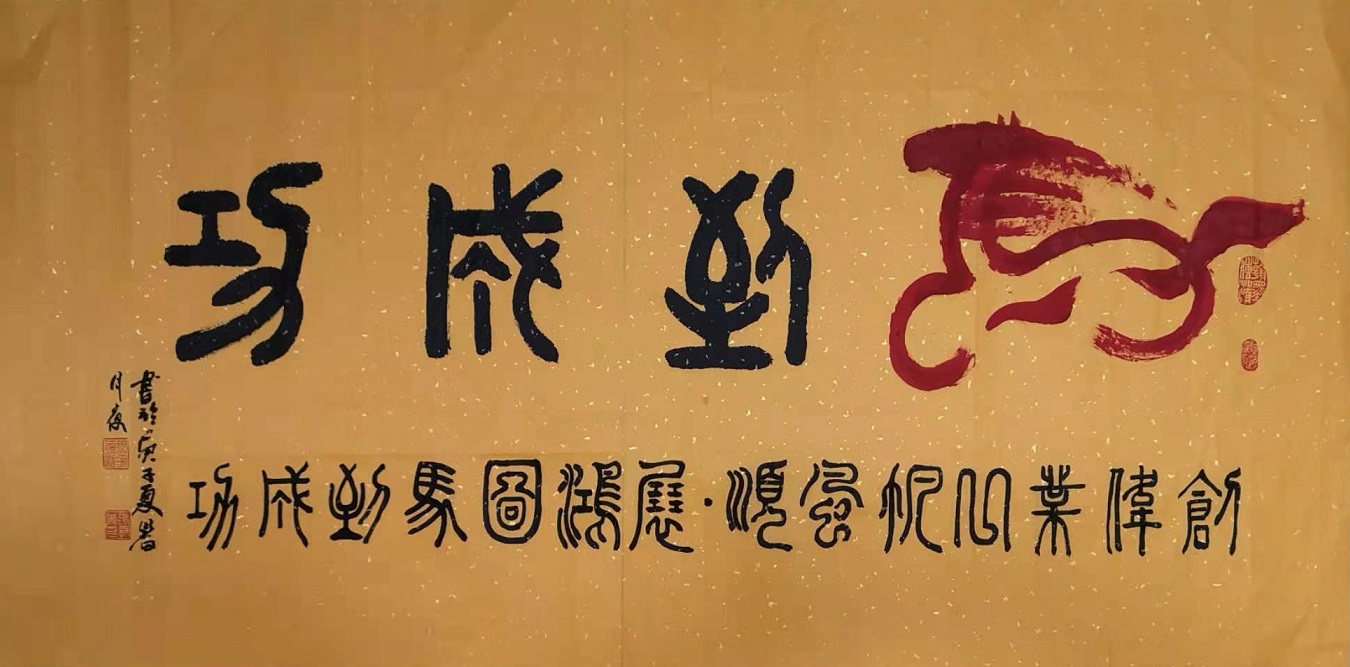 馬到成功
創偉業帆風順·展鴻圖馬到成功
書於庚子夏
月夜